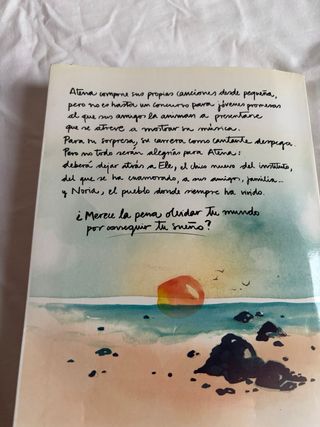 Atena compone sus propias canciones desde pequeña,
pero no es hasta un concurso para jóvenes promesas
al que sus amigos la animan a presentarse
que se atreve a mostrar su música.
Para su sorpresa, su carrera como cantante despega.
Pero no todo serán alegrías para Atena:
deberá dejar atrás a Ele, el chico nuevo del instituto,
del que se ha enamorado, a sus amigos, familia...
y Noria, el pueblo donde siempre ha vivido.
¿Merece la pena olvidar tu mundo
por conseguir tu sueño?